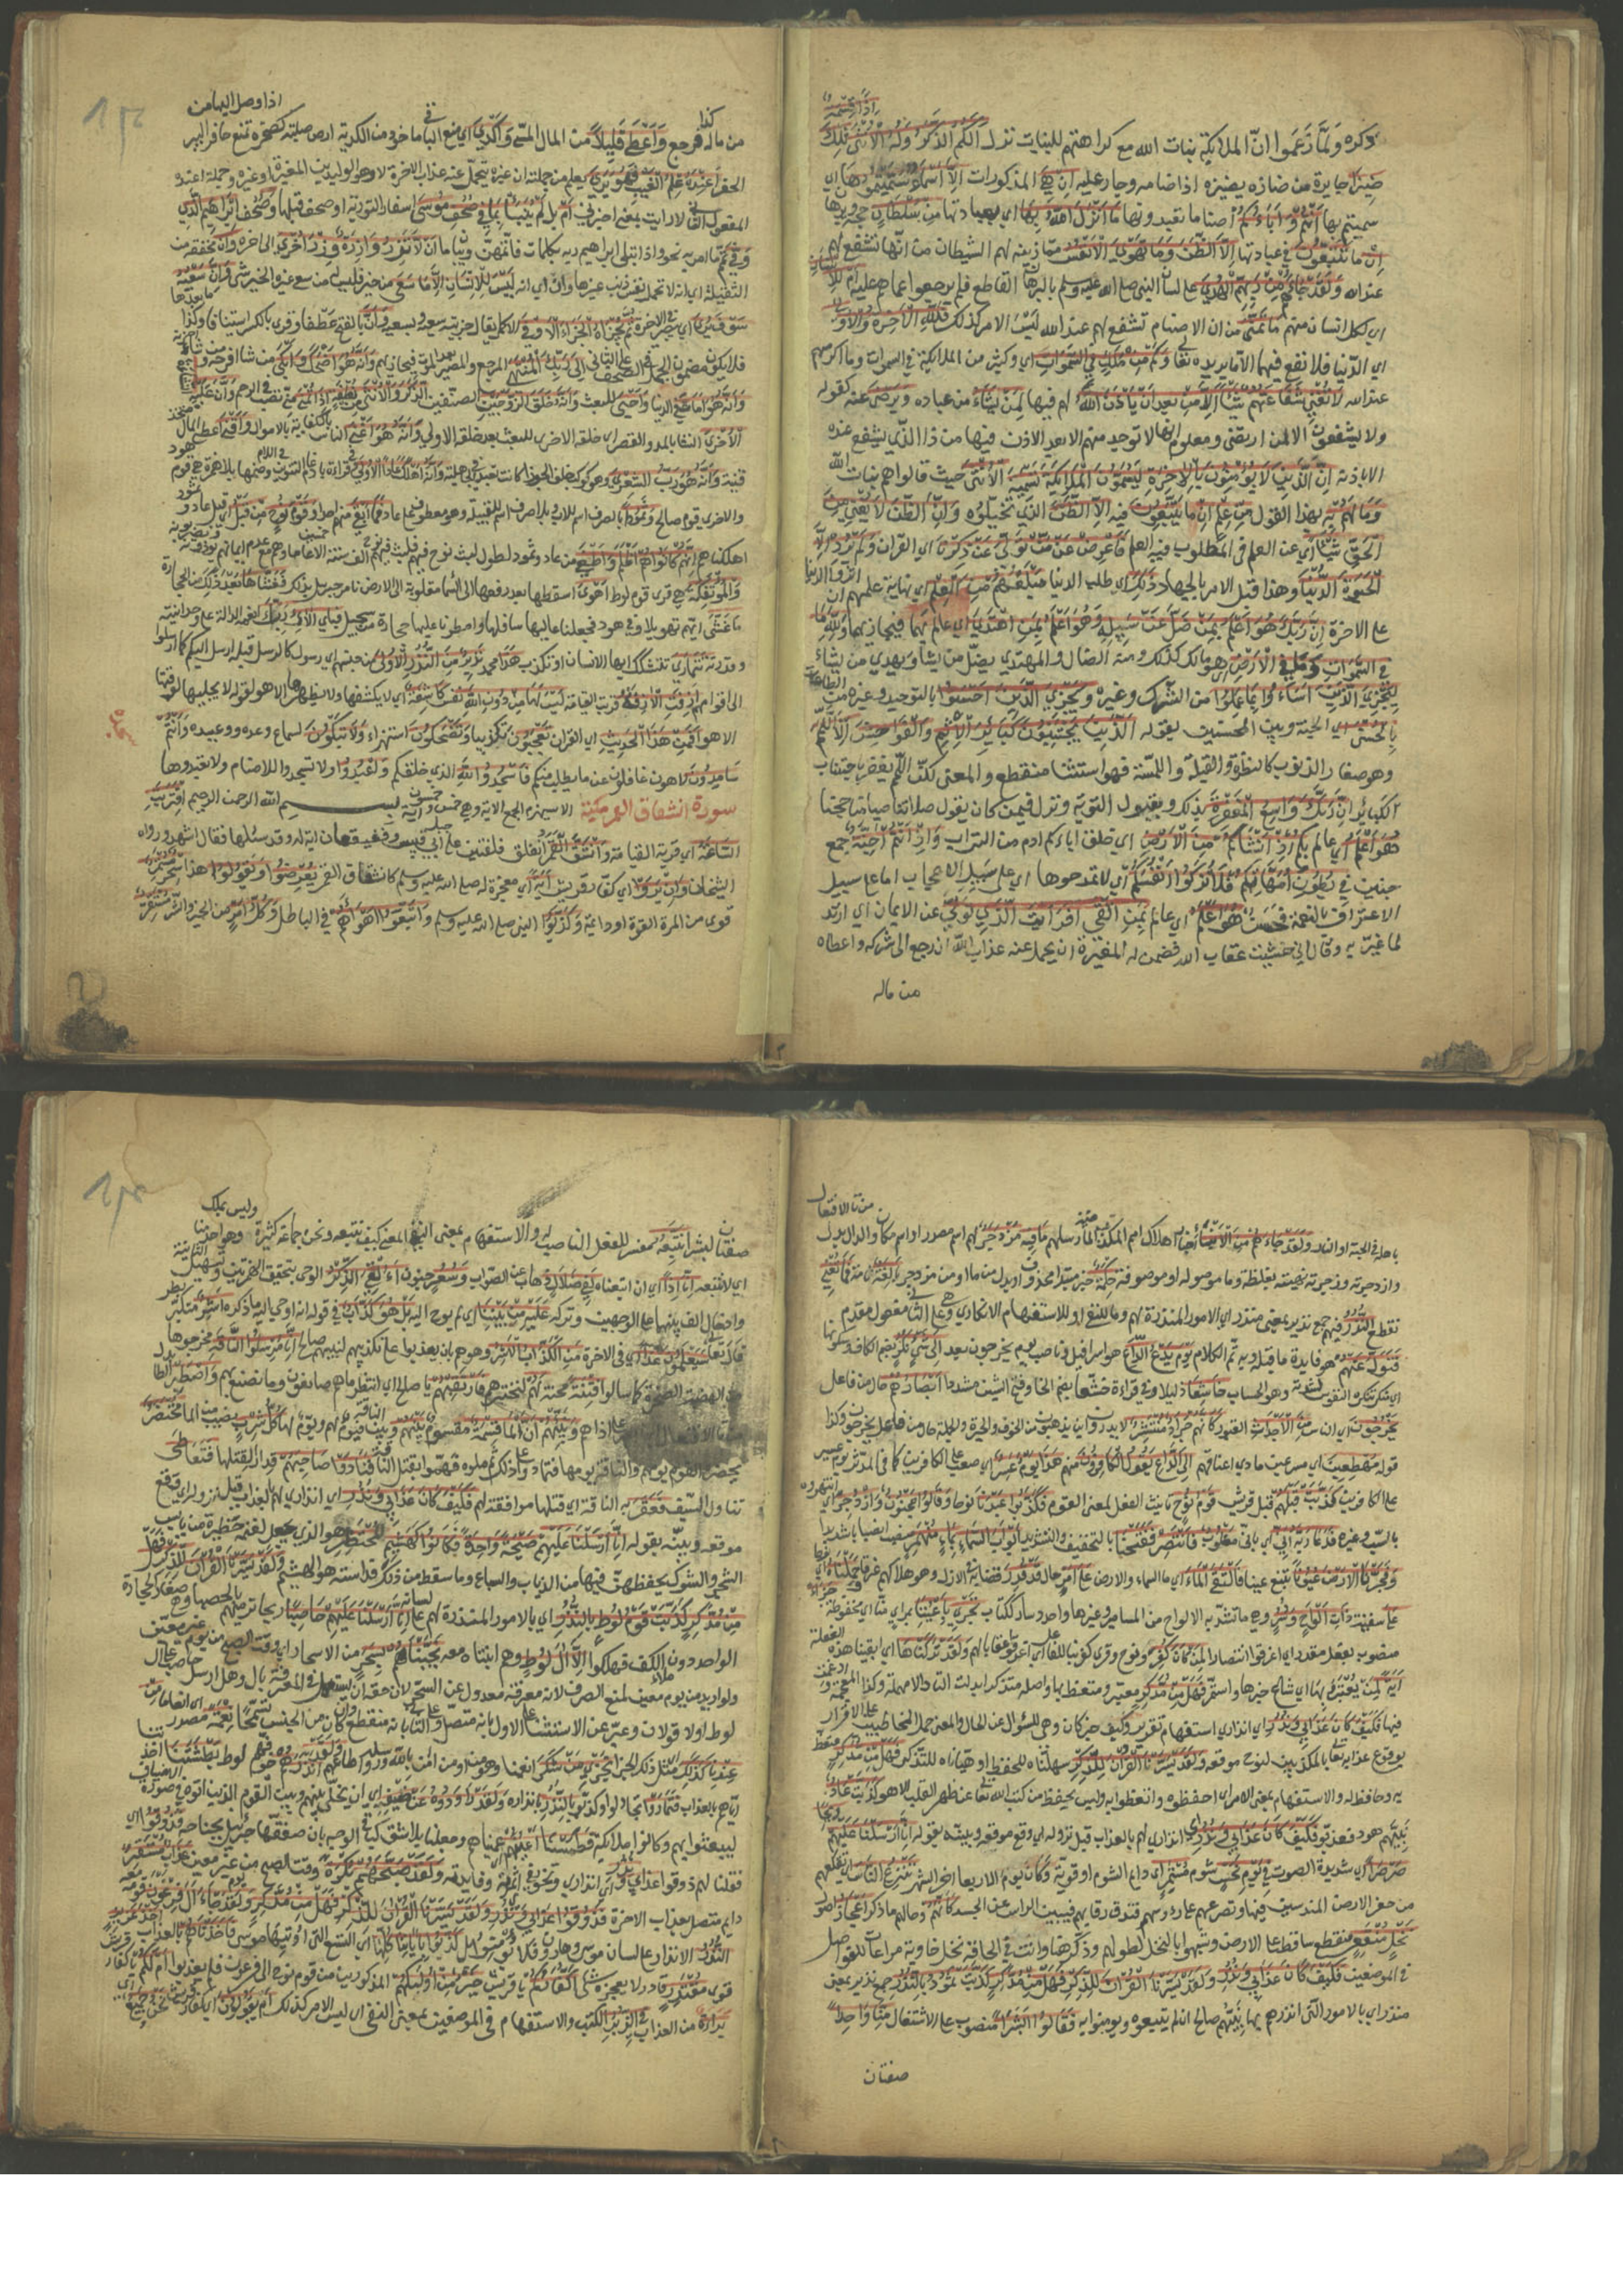 اذا قسمة
ذكره ولما زعموا ان الملائكة بنات الله مع كراهتهم للبنات نزل الكم الذكر وله الانثى تلك
ضيزى جايرة من ضازه يضيزه اذا ضامه وجار عليه ان هي المذكورات الا اسماء سميتموها اي
سميتم بها انتم واباؤكم اصناما تعبدونها ما انزل الله بها اي بعبادتها من سلطان حجة وبرهان
ان ما يتبعون في عبادتها الا الظن وما تهوى الانفس مما زينه لهم الشيطان من انها تشفع لهم
عند الله ولقد جاءهم من ربهم الهدى على لسان النبي صلى الله عليه وسلم بالبرهان القاطع فلم يرجعوا عما هم عليه ام للانسان
اي لكل انسان منهم ما تمنى من ان الاصنام تشفع لهم عند الله ليس الامر كذلك فلله الاخرة والاولى
اي الدنيا فلا نفع فيهما الا ما يريده تعالى وكم من ملك في السموات اي وكثير من الملائكة في السموات وما اكرمهم
عند الله لا تغني شفاعتهم شيئا الا من بعد ان ياذن الله لهم فيها لمن يشاء من عباده ويرضى عنه كقوله
ولا يشفعون الا لمن ارتضى ومعلوم انها لا توجد منهم الا بعد الاذن فيها من ذا الذي يشفع عنده
الا باذنه ان الذين لا يؤمنون بالاخرة ليسمون الملائكة تسمية الانثى حيث قالوا هم بنات الله
وما لهم به بهذا القول من علم ان ما يتبعون فيه الا الظن الذي تخيلوه وان الظن لا يغني من
الحق شيئا اي عن العلم فى المطلوب فيه العلم فاعرض عن من تولى عن ذكرنا اي القران ولم يرد الا
الحيوة الدنيا وهذا قبل الامر بالجهاد ذلك اي طلب الدنيا مبلغهم من العلم اي نهاية علمهم ان اثروا الدنيا
على الاخرة ان ربك هو اعلم بمن ضل عن سبيله وهو اعلم بمن اهتدى اي عالم بهما فيجازيهما ولله ما
في السموات وما في الارض اي هو مالك لذلك ومنه الضال والمهتدي يضل من يشاء ويهدي من يشاء
ليجزي الذين اساءوا بما عملوا من الشرك وغيره ويجزي الذين احسنوا بالتوحيد وغيره من الطاعات
بالحسنى اي الجنة وبين المحسنين بقوله الذين يجتنبون كبائر الاثم والفواحش الا اللمم
وهو صغار الذنوب كالنظرة والقبلة واللمسة فهو استثنا منقطع والمعنى لكن اللمم يغفر باجتناب
الكبائر ان ربك واسع المغفرة بذلك وبقبول التوبة ونزل فيمن كان يقول صلاتنا صيامنا حجنا
هو اعلم اي عالم بكم اذ انشاكم من الارض اي خلق اباكم ادم من التراب واذ انتم اجنة جمع
جنين في بطون امهاتكم فلا تزكوا انفسكم اي لا تمدحوها اي على سبيل الاعجاب اما على سبيل
الاعتراف بالنعمة فحسن هو اعلم اي عالم بمن اتقى افرايت الذي تولى عن الايمان اي ارتد
لما عير به وقال اني خشيت عقاب الله فضمن له المغيرة ان يحمل عنه عذاب الله ان رجع الى شركه واعطاه
من ماله
من ماله كذا فرجع واعطى قليلا من المال المسمى واكدى اي منع الباقي ماخوذ من الكدية ارض صلبة كصخرة تمنع حافر البير اذا وصل اليها من
الحفر اعنده علم الغيب فهو يرى يعلم من جملته ان غيره يتحمل عنه عذاب الاخرة لا وهو الوليد بن المغيرة او غيره وجملة اعنده
المفعول الثاني لارايت بمعنى اخبرني ام بل لم ينبأ بما في صحف موسى اسفار التورية او صحف قبلها وصحف ابراهيم الذي
وفى تمم ما امر به نحو واذ ابتلى ابراهيم ربه بكلمات فاتمهن وبيان ما ان لا تزر وازرة وزر اخرى الى اخره وان مخففة من
الثقيلة اي انه لا تحمل نفس ذنب غيرها وان اي انه ليس للانسان الا ما سعى من خير فليس له من سعي غيره الخير شي وان سعيه
سوف يرى اي يبصر في الاخرة ثم يجزاه الجزاء الاوفى الاكمل يقال جزيته سعيه وبسعيه وان بالفتح عطفا وقرئ بالكسر استئنافا وكذا ما بعدها
فلا يكون مضمون الجمل في الصحف على الثاني الى ربك المنتهى المرجع والمصير بعد الموت فيجازيهم وانه هو اضحك من شاء افرحه وابكى من شاء احزنه
وانه هو امات في الدنيا واحيى للبعث وانه خلق الزوجين الصنفين الذكر والانثى من نطفة اذا تمنى تصب في الرحم وان عليه النشاة
الاخرى بالمد والقصر اي خلقة الاخرى للبعث بعد خلقة الاولى وانه هو اغنى الناس بالكفاية بالاموال واقنى اعطى المال المتخذ
قنية وانه هو رب الشعرى هو كوكب خلف الجوزا كانت تعبد في الجاهلية وانه اهلك عادا الاولى في قراءة بادغام التنوين في اللام وضمها بلا همزة هي قوم هود
والاخرى قوم صالح وثمود بالصرف اسم للاب وبلا صرف اسم للقبيلة وهو معطوف على عادا فما ابقى منهم احدا وقوم نوح من قبل اي قبل عاد وثمود
اهلكناهم انهم كانوا هم اظلم واطغى من عاد وثمود لطول لبث نوح فيهم فلبث فيهم الف سنة الا خمسين عاما وهم مع عدم ايمانهم يؤذونه ويضربونه
والمؤتفكة هي قرى قوم لوط اهوى اسقطها بعد رفعها الى السماء مقلوبة الى الارض بامر جبريل بذلك فغشاها بعد ذلك من الحجارة
ما غشى ابهم تهويلا وفي هود فجعلنا عاليها سافلها وامطرنا عليها حجارة من سجيل فباي الاء ربك انعمه الدالة على وحدانيته
وقدرته تتمارى تتشكك ايها الانسان او تكذب هذا محمد نذير من النذر الاولى من جنسهم اي رسول كالرسل قبله ارسل اليكم كما ارسلوا
الى اقوامهم ازفت الازفة قربت القيامة ليس لها من دون الله نفس كاشفة اي لا يكشفها ولا يظهرها الا هو لقوله لا يجليها لوقتها
الا هو افمن هذا الحديث اي القران تعجبون تكذيبا وتضحكون استهزاء ولا تبكون لسماع وعده ووعيده وانتم
سامدون لاهون غافلون عن ما يطلب منكم فاسجدوا لله الذي خلقكم واعبدوا ولا تسجدوا للاصنام ولا تعبدوها
سورة انشقاق القمر مكية الا سيهزم الجمع الاية وهي خمس وخمسون اية بسم الله الرحمن الرحيم اقتربت
الساعة اي قربت القيامة وانشق القمر انفلق فلقتين على جبل ابي قبيس وقعيقعان اية له وقد سئلها فقال اشهدوا رواه
الشيخان وان يروا اي كفار قريش اية اي معجزة له صلى الله عليه وسلم كانشقاق القمر يعرضوا ويقولوا هذا سحر مستمر
قوي من المرة القوة او دائمة وكذبوا النبي صلى الله عليه وسلم واتبعوا اهواءهم في الباطل وكل امر من الخير والشر مستقر
باهله في الجنة او النار ولقد جاءهم من الانباء اخبار اهلاك امم المكذبة رسلهم ما فيه مزدجر لهم اسم مصدر او اسم مكان والدال بدل من تا الافتعال
وازدجرته وزجرته نهيته بغلظة وما موصولة او موصوفة حكمة خبر مبتدا محذوف او بدل من ما او من مزدجر بالغة تامة فما تغن
تنفع النذر فيهم جمع نذير بمعنى منذر اي الامور المنذرة لهم وما للنفي او للاستفهام الانكاري وهي على الثاني مفعول مقدم
فتول عنهم هو فايدة ما قبله وبه تم الكلام يوم يدع الداع هو اسرافيل وناصب يوم يخرجون بعد الى شي نكر بضم الكاف وسكونها
اي منكر تنكره النفوس لشدته وهو الحساب خاشعا ذليلا وفي قراءة خشعا بضم الخا وفتح الشين مشددة ابصارهم حال من فاعل
يخرجون اي الناس من الاجداث القبور كانهم جراد منتشر لا يدرون اين يذهبون من الخوف والحيرة والجملة حال من فاعل يخرجون وكذا
قوله مهطعين اي مسرعين مادي اعناقهم الى الداع يقول الكافرون منهم هذا يوم عسر اي صعب على الكافرين كما في المدثر يوم عسير
على الكافرين كذبت قبلهم قبل قريش قوم نوح تانيث الفعل لمعنى القوم فكذبوا عبدنا نوحا وقالوا مجنون وازدجر اي انتهروه
بالسب وغيره فدعا ربه اني اي باني مغلوب فانتصر ففتحنا بالتخفيف والتشديد ابواب السماء بماء منهمر منصب انصبابا شديدا
وفجرنا الارض عيونا تنبع عينا فالتقى الماء اي ما السماء والارض على امر حال قد قدر قضي في الازل وهو هلاكهم غرقا وحملناه اي نوحا
على سفينة ذات الواح ودسر وهو ما تشد به الالواح من المسامير وغيرها واحدها دسار ككتاب تجري باعيننا بمراى منا اي محفوظة جزاء
منصوب بفعل مقدر اي اغرقوا انتصارا لمن كان كفر وهو نوح وقرئ كفر بناء للفاعل اي اغرقوا عقابا لهم ولقد تركناها اي ابقينا هذه الفعلة
اية لمن يعتبر بها اي شاع خبرها واستمر فهل من مدكر معتبر ومتعظ بها واصله مذتكر ابدلت التاء دالا مهملة وكذا المعجمة وادغمت
فيها فكيف كان عذابي ونذر اي انذاري استفهام تقرير وكيف خبر كان وهي للسؤال عن الحال والمعنى حمل المخاطبين على الاقرار
بوقوع عذابه تعالى بالمكذبين لنوح موقعه ولقد يسرنا القران للذكر سهلناه للحفظ او هياناه للتذكر فهل من مدكر متعظ
به وحافظ له والاستفهام بمعنى الامر اي احفظوه واتعظوا به وليس يحفظ من كتب الله تعالى عن ظهر القلب الا هو كذبت عاد
نبيهم هود فعذبوا فكيف كان عذابي ونذر اي انذاري لهم بالعذاب قبل نزوله اي وقع موقعه وبينه بقوله انا ارسلنا عليهم ريحا
صرصرا اي شديدة الصوت في يوم نحس شوم مستمر اي دايم الشوم او قوية وكان يوم الاربعا اخر الشهر تنزع الناس تقلعهم
من حفر الارض المندسين فيها وتصرعهم على رؤسهم فتدق رقابهم فيبين الراس عن الجسد كانهم وحالهم ما ذكر اعجاز اصول
نخل منقعر منقطع ساقط على الارض وشبهوا بالنخل لطولهم وذكر هنا وانث في الحاقة نخل خاوية مراعاة للفواصل
في الموضعين فكيف كان عذابي ونذر ولقد يسرنا القران للذكر فهل من مدكر كذبت ثمود بالنذر جمع نذير بمعنى
منذر اي بالامور التي انذرهم بها نبيهم صالح ان لم يتبعوه ويؤمنوا به فقالوا ابشرا منصوب على الاشتغال منا واحدا
صفتان
صفتان لبشرا نتبعه مفسر للفعل الناصب له والاستفهام بمعنى النفي المعنى كيف نتبعه ونحن جماعة كثيرة وهو احد منا وليس بملك
اي لا نتبعه انا اذا اي ان اتبعناه لفي ضلال ذهاب عن الصواب وسعر جنون ءالقي الذكر الوحي بتحقيق الهمزتين وتسهيل الثانية
وادخال الف بينهما على الوجهين وتركه عليه من بيننا اي لم يوح اليه بل هو كذاب في قوله انه اوحي اليه ما ذكره اشر متكبر بطر
قال تعالى سيعلمون غدا اي في الاخرة من الكذاب الاشر وهو هم بان يعذبوا على تكذيبهم لنبيهم صالح انا مرسلوا الناقة مخرجوها
من الهضبة الصخرة كما سالوا فتنة محنة لهم لنختبرهم فارتقبهم يا صالح اي انتظر ما هم صانعون وما يصنع بهم واصطبر الطا
بدل من تا الافتعال اي اصبر على اذاهم ونبئهم ان الماء قسمة مقسوم بينهم وبين الناقة فيوم لهم ويوم لها كل شرب نصيب من الماء محتضر
يحضره القوم يومهم والناقة يومها فتمادوا على ذلك ثم ملوه فهموا بقتل الناقة فنادوا صاحبهم قدار ليقتلها فتعاطى
تناول السيف فعقر به الناقة اي قتلها موافقة لهم فكيف كان عذابي ونذر اي انذاري لهم بالعذاب قبل نزوله اي وقع
موقعه وبينه بقوله انا ارسلنا عليهم صيحة واحدة فكانوا كهشيم المحتظر هو الذي يجعل لغنمه حظيرة من يابس
الشجر والشوك يحفظهن فيها من الذياب والسباع وما سقط من ذلك فداسته هو الهشيم ولقد يسرنا القران للذكر فهل
من مدكر كذبت قوم لوط بالنذر اي بالامور المنذرة لهم على لسانه انا ارسلنا عليهم حاصبا ريحا ترميهم بالحصباء وهي صغار الحجارة
الواحد دون ملء الكف فهلكوا الا ال لوط وهم ابنتاه معه نجيناهم بسحر من الاسحار اي وقت الصبح من يوم غير معين
ولو اريد من يوم معين لمنع الصرف لانه معرفة معدول عن السحر لان حقه ان يستعمل في المعرفة بال وهل ارسل حاصب على ال
لوط اولا قولان وعبر عن الاستثناء على الاول بانه متصل وعلى الثاني بانه منقطع وان كان من الجنس تسمحا نعمة مصدر اي انعاما من
عندنا كذلك اي مثل ذلك الجزاء نجزي من شكر انعمنا وهو مؤمن او من امن بالله ورسله واطاعهم ولقد انذرهم خوفهم لوط بطشتنا اخذتنا
اياهم بالعذاب فتماروا تجادلوا وكذبوا بالنذر بانذاره ولقد راودوه عن ضيفه اي ان يخلي بينهم وبين القوم الذين اتوه في صورة الاضياف
ليعبثوا بهم وكانوا ملائكة فطمسنا اعينهم اعميناها وجعلناها بلا شق كباقي الوجه بان صفقها جبريل بجناحه فذوقوا اي
فقلنا لهم ذوقوا عذابي ونذر اي انذاري وتخويفي اي ثمرته وفايدته ولقد صبحهم بكرة وقت الصبح من يوم غير معين عذاب مستقر
دايم متصل بعذاب الاخرة فذوقوا عذابي ونذر ولقد يسرنا القران للذكر فهل من مدكر ولقد جاء ال فرعون قومه معه
النذر الانذار على لسان موسى وهارون فلم يؤمنوا بل كذبوا باياتنا كلها اي التسع التي اوتيها موسى فاخذناهم بالعذاب اخذ عزيز
قوي مقتدر قادر لا يعجزه شي اكفاركم يا قريش خير من اولئكم المذكورين من قوم نوح الى فرعون فلم يعذبوا ام لكم يا كفار قريش
براءة من العذاب في الزبر الكتب والاستفهام في الموضعين بمعنى النفي اي ليس الامر كذلك ام يقولون اي كفار قريش نحن جميع